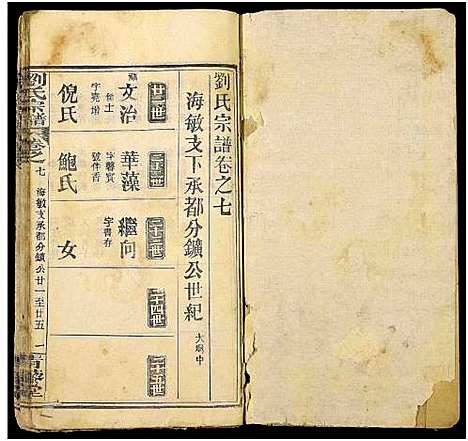 劉氏宗譜卷之七
海敏支下承都分鑛公世紀
大𡒄中
廿一世
文治
字亮增
鮑氏
倪氏
廿二世
華藻
字馨賓
號伴香
鮑氏
二十三世
繼向
字書存
女
二十四世
二十五世
劉氏宗譜
卷之七
海敏支下承都分鑛公廿一至廿五
一
青藜堂